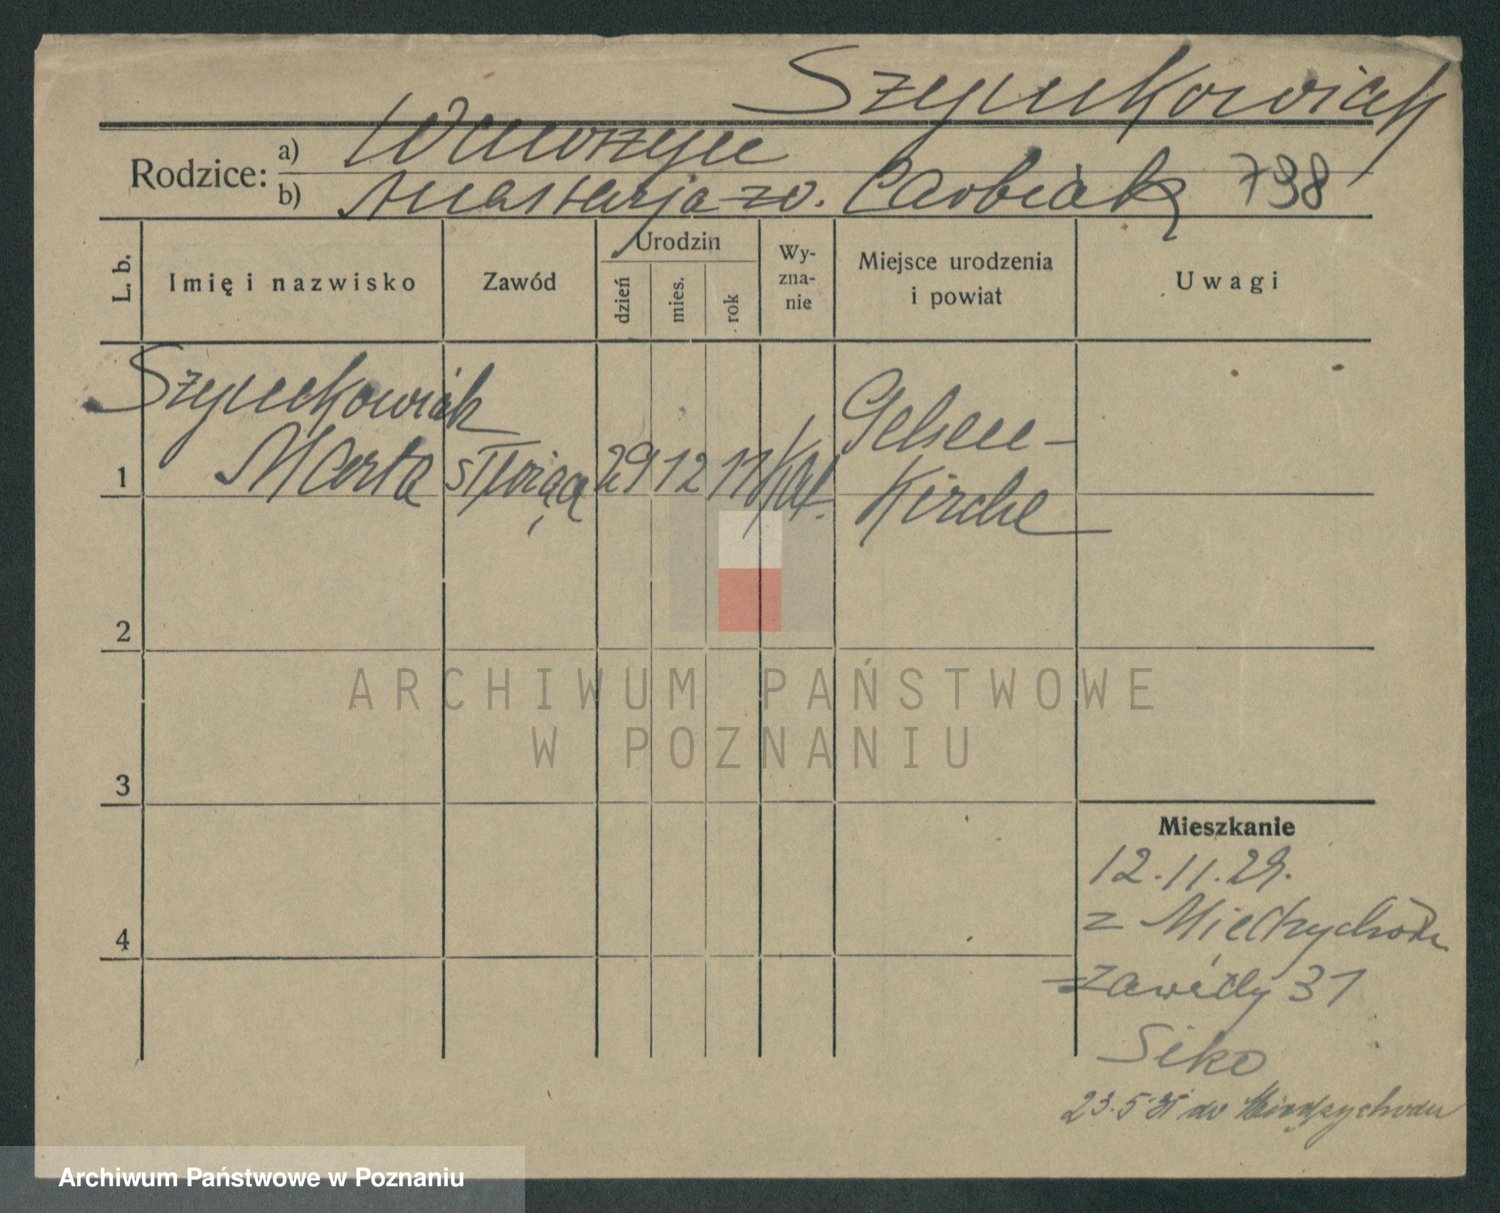 Szymkowiak
Rodzice: a) Wawrzyn
b) Anastazja z d. 798
L. b. Imię i nazwisko Zawód Urodzin Wy-
zna-
nie Miejsce urodzenia
i powiat Uwagi
dzień mies. rok
Szymkowiak
1 Marta służąca 29 12 11 kat. Gelsen-
Kirche
2
3
4
Mieszkanie
12.11.29.
z Miedzychodu
Zawady 31
Siko
23.5.31 do Międzychodu
ARCHIWUM PAŃSTWOWE
W POZNANIU
Archiwum Państwowe w Poznaniu